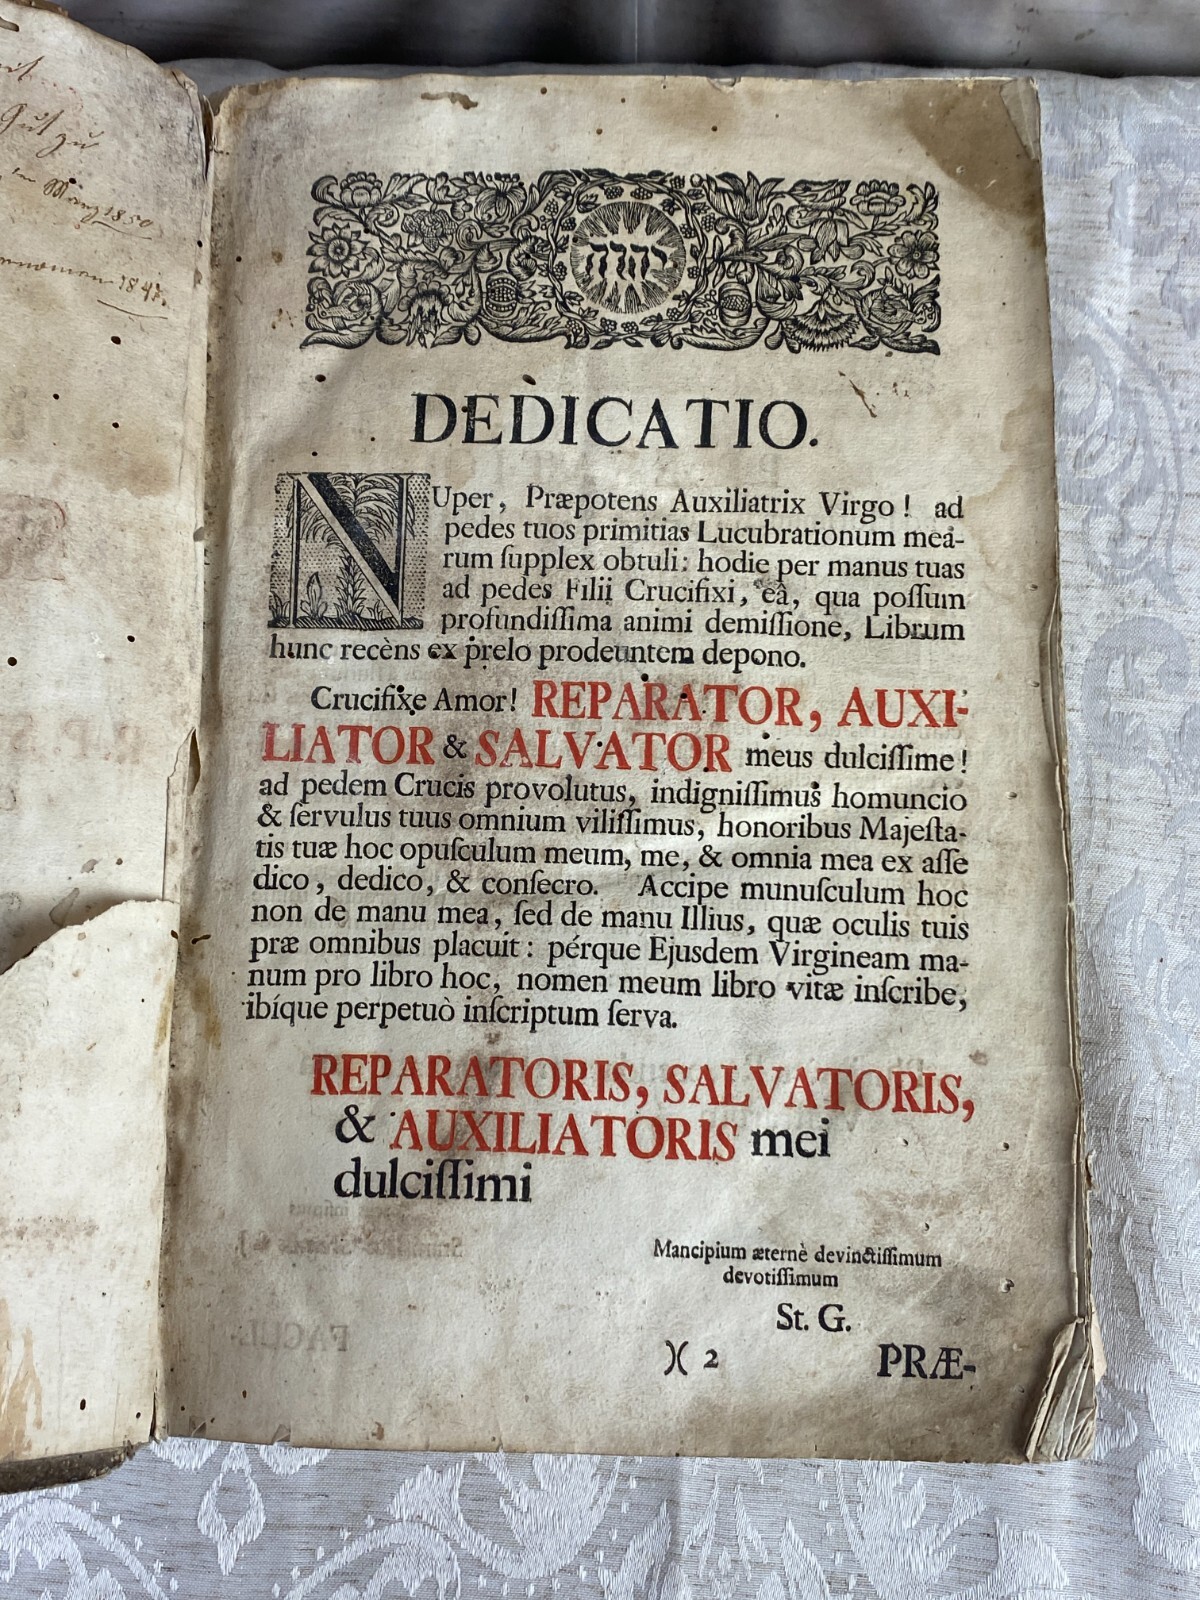 Gut zu
1850
1847.
יהוה
DEDICATIO.
NUper, Præpotens Auxiliatrix Virgo! ad
pedes tuos primitias Lucubrationum meá-
rum ſupplex obtuli: hodie per manus tuas
ad pedes Filii Crucifixi, eâ, qua poſſum
profundiſſima animi demiſſione, Librum
hunc recèns ex prelo prodeuntem depono.
Crucifixe Amor! REPARATOR, AUXI-
LIATOR & SALVATOR meus dulciſſime!
ad pedem Crucis provolutus, indigniſſimus homuncio
& ſervulus tuus omnium viliſſimus, honoribus Majeſta-
tis tuæ hoc opuſculum meum, me, & omnia mea ex aſſe
dico, dedico, & conſecro. Accipe munuſculum hoc
non de manu mea, ſed de manu Illius, quæ oculis tuis
præ omnibus placuit: pérque Ejusdem Virgineam ma-
num pro libro hoc, nomen meum libro vitæ inſcribe,
ibíque perpetuò inſcriptum ſerva.
REPARATORIS, SALVATORIS,
& AUXILIATORIS mei
dulciſſimi
Mancipium æternè devinctiſſimum
devotiſſimum
St. G.
)( 2 PRÆ-